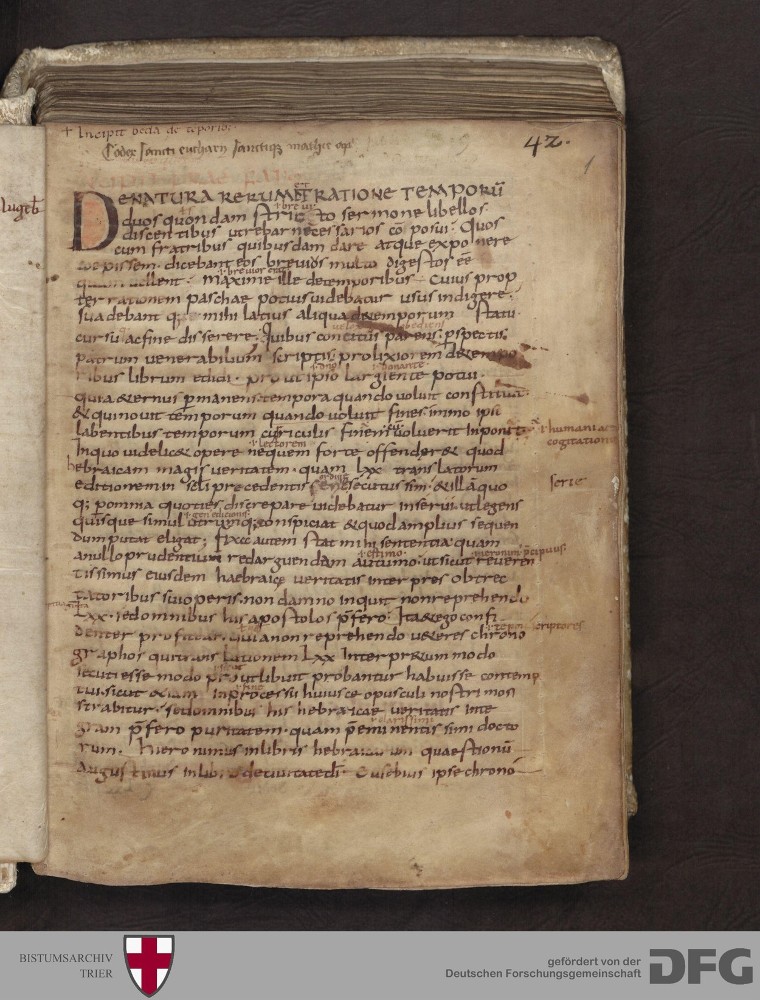 + Incipit beda de teporib.
Codex sancti eucharii sanctiq; mathie apli
42.
1
lugeb
DE NATURA RERUM ET RATIONE TEMPORŪ
duos quondam stricto sermone libellos
discentibus utrebar necessarios cō posui. Quos
cum fratribus quibusdam dare atque exponere
coepissem. dicebant eos breuius multo digestos eē
quam uellent. maxime ille de temporibus. Cuius prop
ter rationem paschae potius uidebatur usus indigere.
suadebant q; mihi latius aliqua de temporum statu
cursu ac fine disserere. Quibus concitus parens. pspectis
patrum uenerabilium scriptis prolixiorem de tempo
ribus librum edidi. prout ipio largiente potui.
quia &ernus pmanens tempora quando uoluit constituit
& qui nouit temporum quando uoluit fines. immo ipsi
labentibus temporum curriculis finem
In quo uidelic& opere nequem forte offender& quod
hebraicam magis ueritatem. quam lxx translatorum
editionem in
q; pomma quoties discrepare uidebatur inserui. ut legens
quisque simul utrumq; conspiciat & quod amplius sequen
dum putat eligat; Fixa autem stat mihi sententia quam
a nullo prudentium redarguendam autumo. ut sicut reueren
tissimus eiusdem haebraice ueritatis interpres obtrec
tatoribus sui operis. non damno inquit non reprehendo
Lxx. sed omnibus his apostolos p̄fero. Ita & ego confi
denter profiteor. quia non reprehendo u&eres chrono
graphos qui translationem Lxx Interpr&um modo
secuti esse modo pro ut libuit probantur habuisse contemp
tui. sicut &iam in processu huiusce opusculi nostri mon
strabitur. sed omnibus his hebraicae ueritatis inte
gram p̄fero puritatem. quam p̄eminentissimi docto
rum. hieronimus in libris hebraicarum quaestionū
Augustinus in libris de ciuitate dī. Eusebius ipse chrono
humani
cogitation
serie
scriptores
BISTUMSARCHIV
TRIER
gefördert von der
Deutschen Forschungsgemeinschaft
DFG